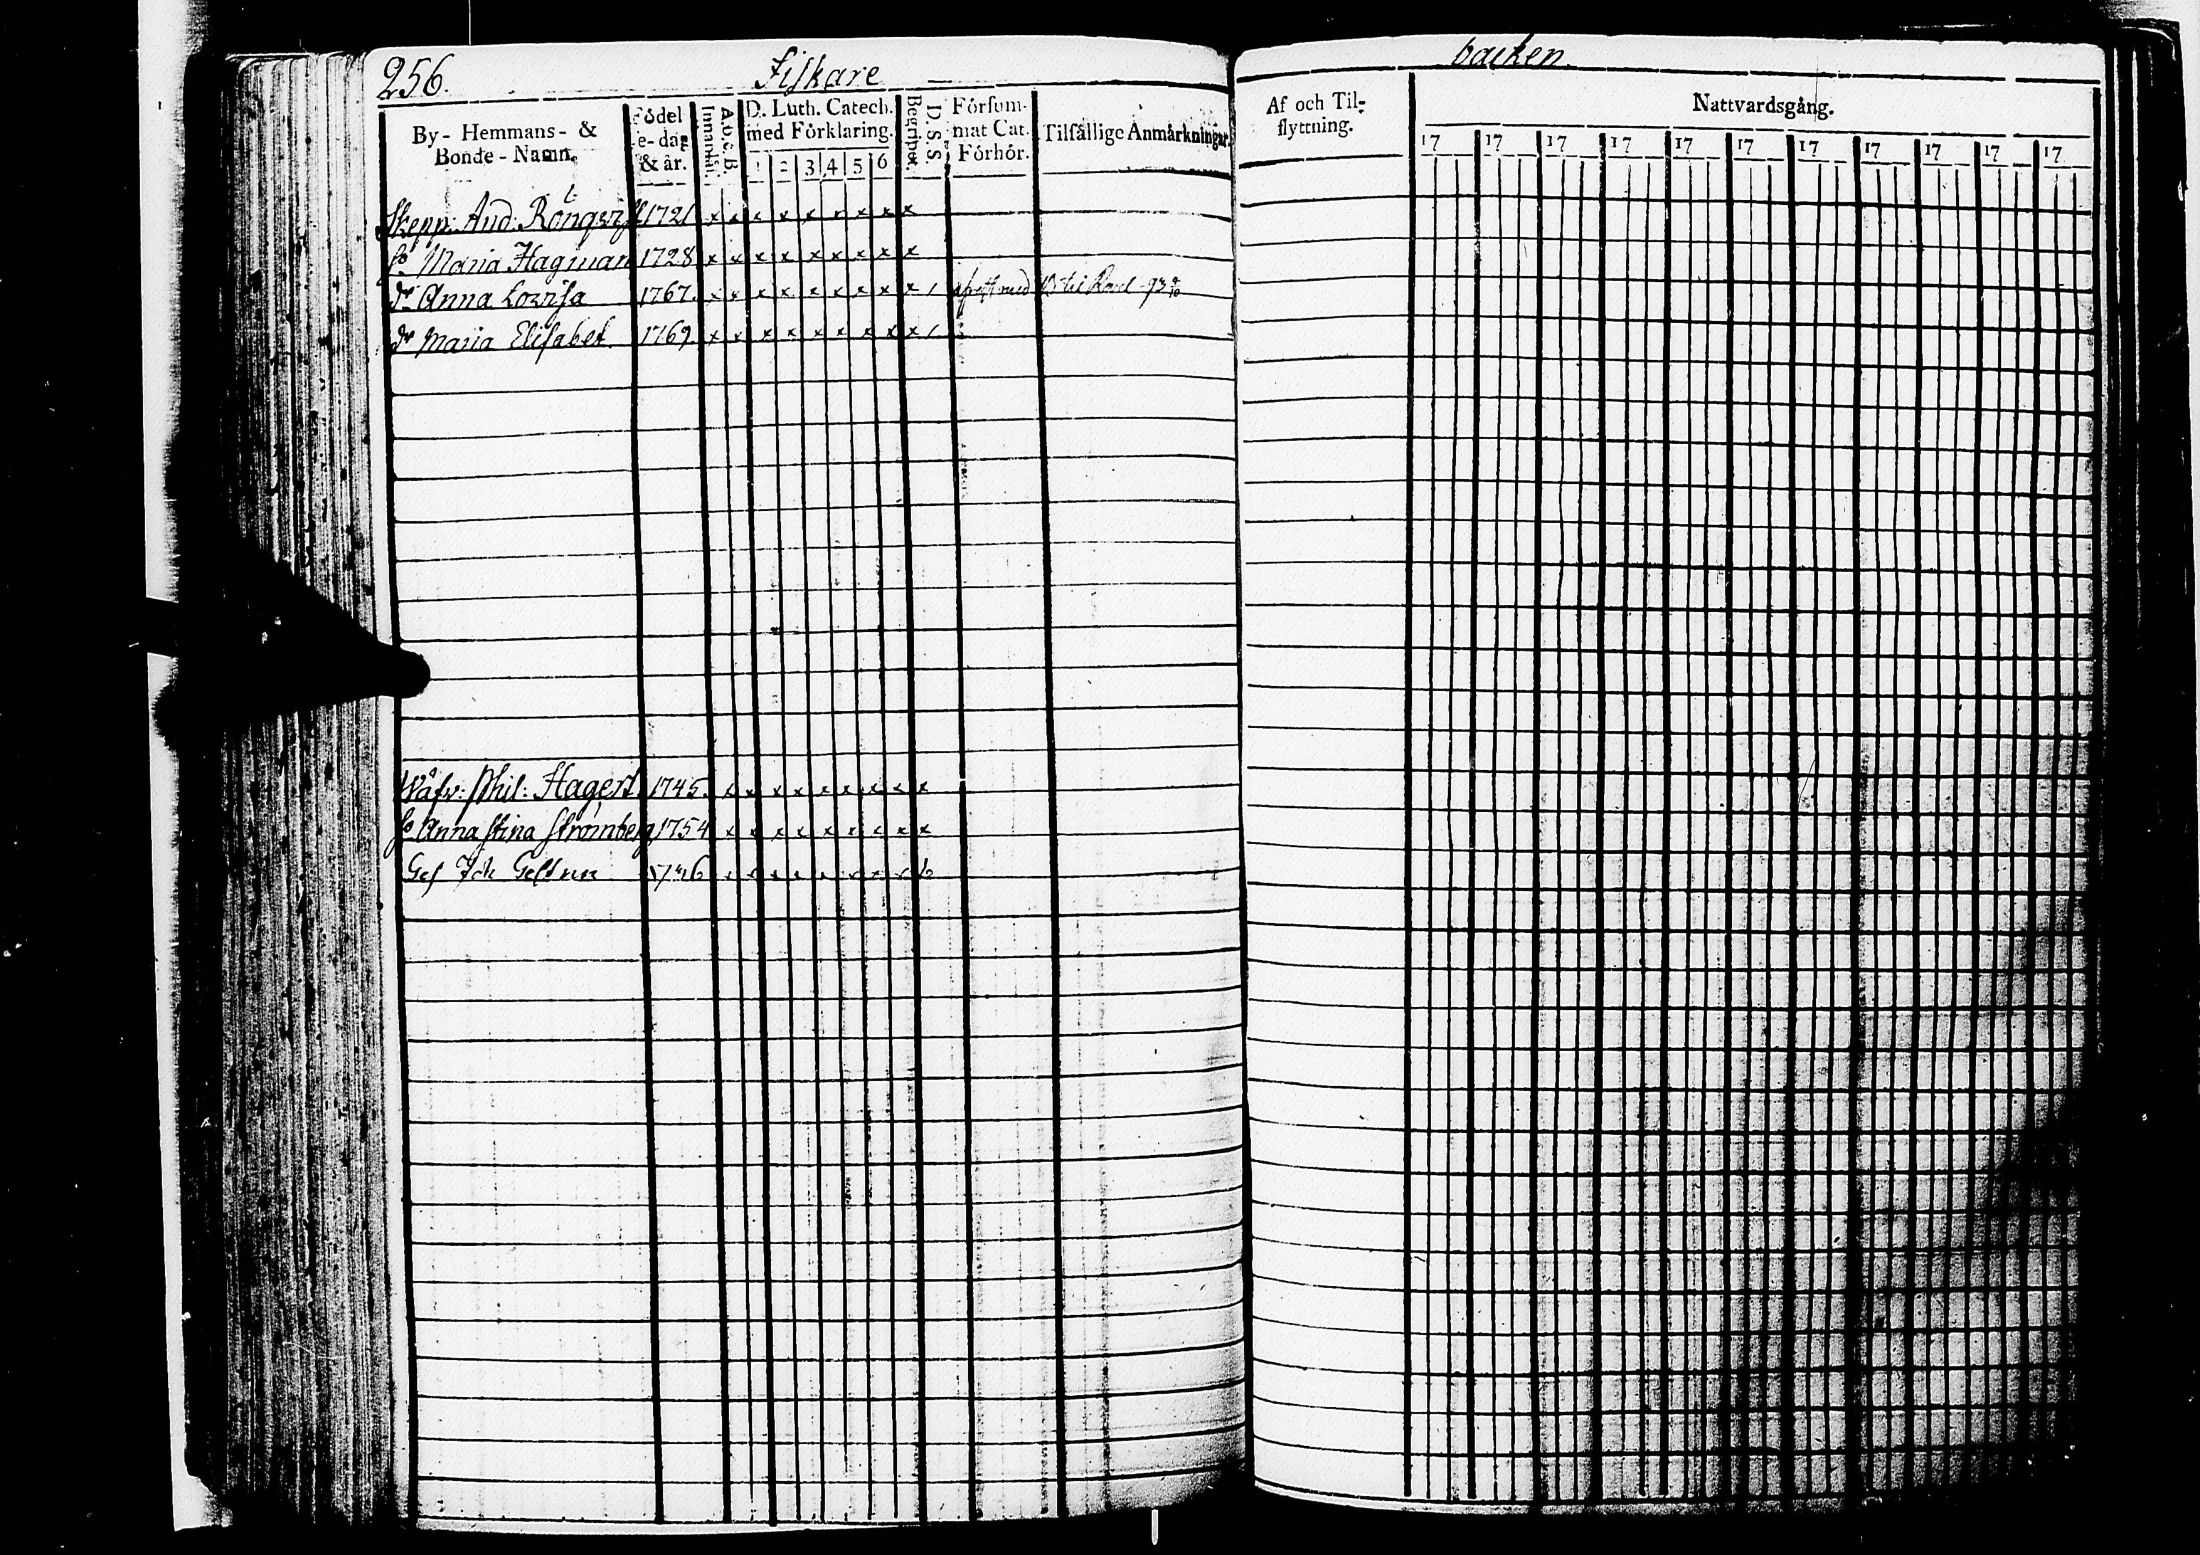 256. Fiskare backen.
By- Hemmans- & Bonde-Namn.
Födel e-dag & år.
Innantil.
A. b. c. B.
D. Luth. Catech. med Förklaring.
1 2 3 4 5 6
Begripet.
D. S. S.
Försummat Cat. Förhör.
Tilfällige Anmärkningar.
Af och Tilflyttning.
Nattvardsgång.
17 17 17 17 17 17 17 17 17 17 17
Skepp: And: 1721 x x x x x x x x x
h:o Maria Hagman 1728 x x x x x x x x x
d:r Anna Lovisa 1767. x x x x x x x x x /
d:r Maria Elisabet 1769. x x x x x x x x x /
Wäfv: Phil: Hagert 1745. x x x x x x x x x
h:o Anna Stina Strömberg 1754 x x x x x x x x x
Ges